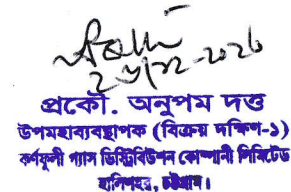 প্রকৌ. অনুপম দত্ত
উপমহাব্যবস্থাপক (বিক্রয় দক্ষিণ-১)
কর্ণফুলী গ্যাস ডিস্ট্রিবিউশন কোম্পানী লিমিটেড
হালিশহর, চট্টগ্রাম।